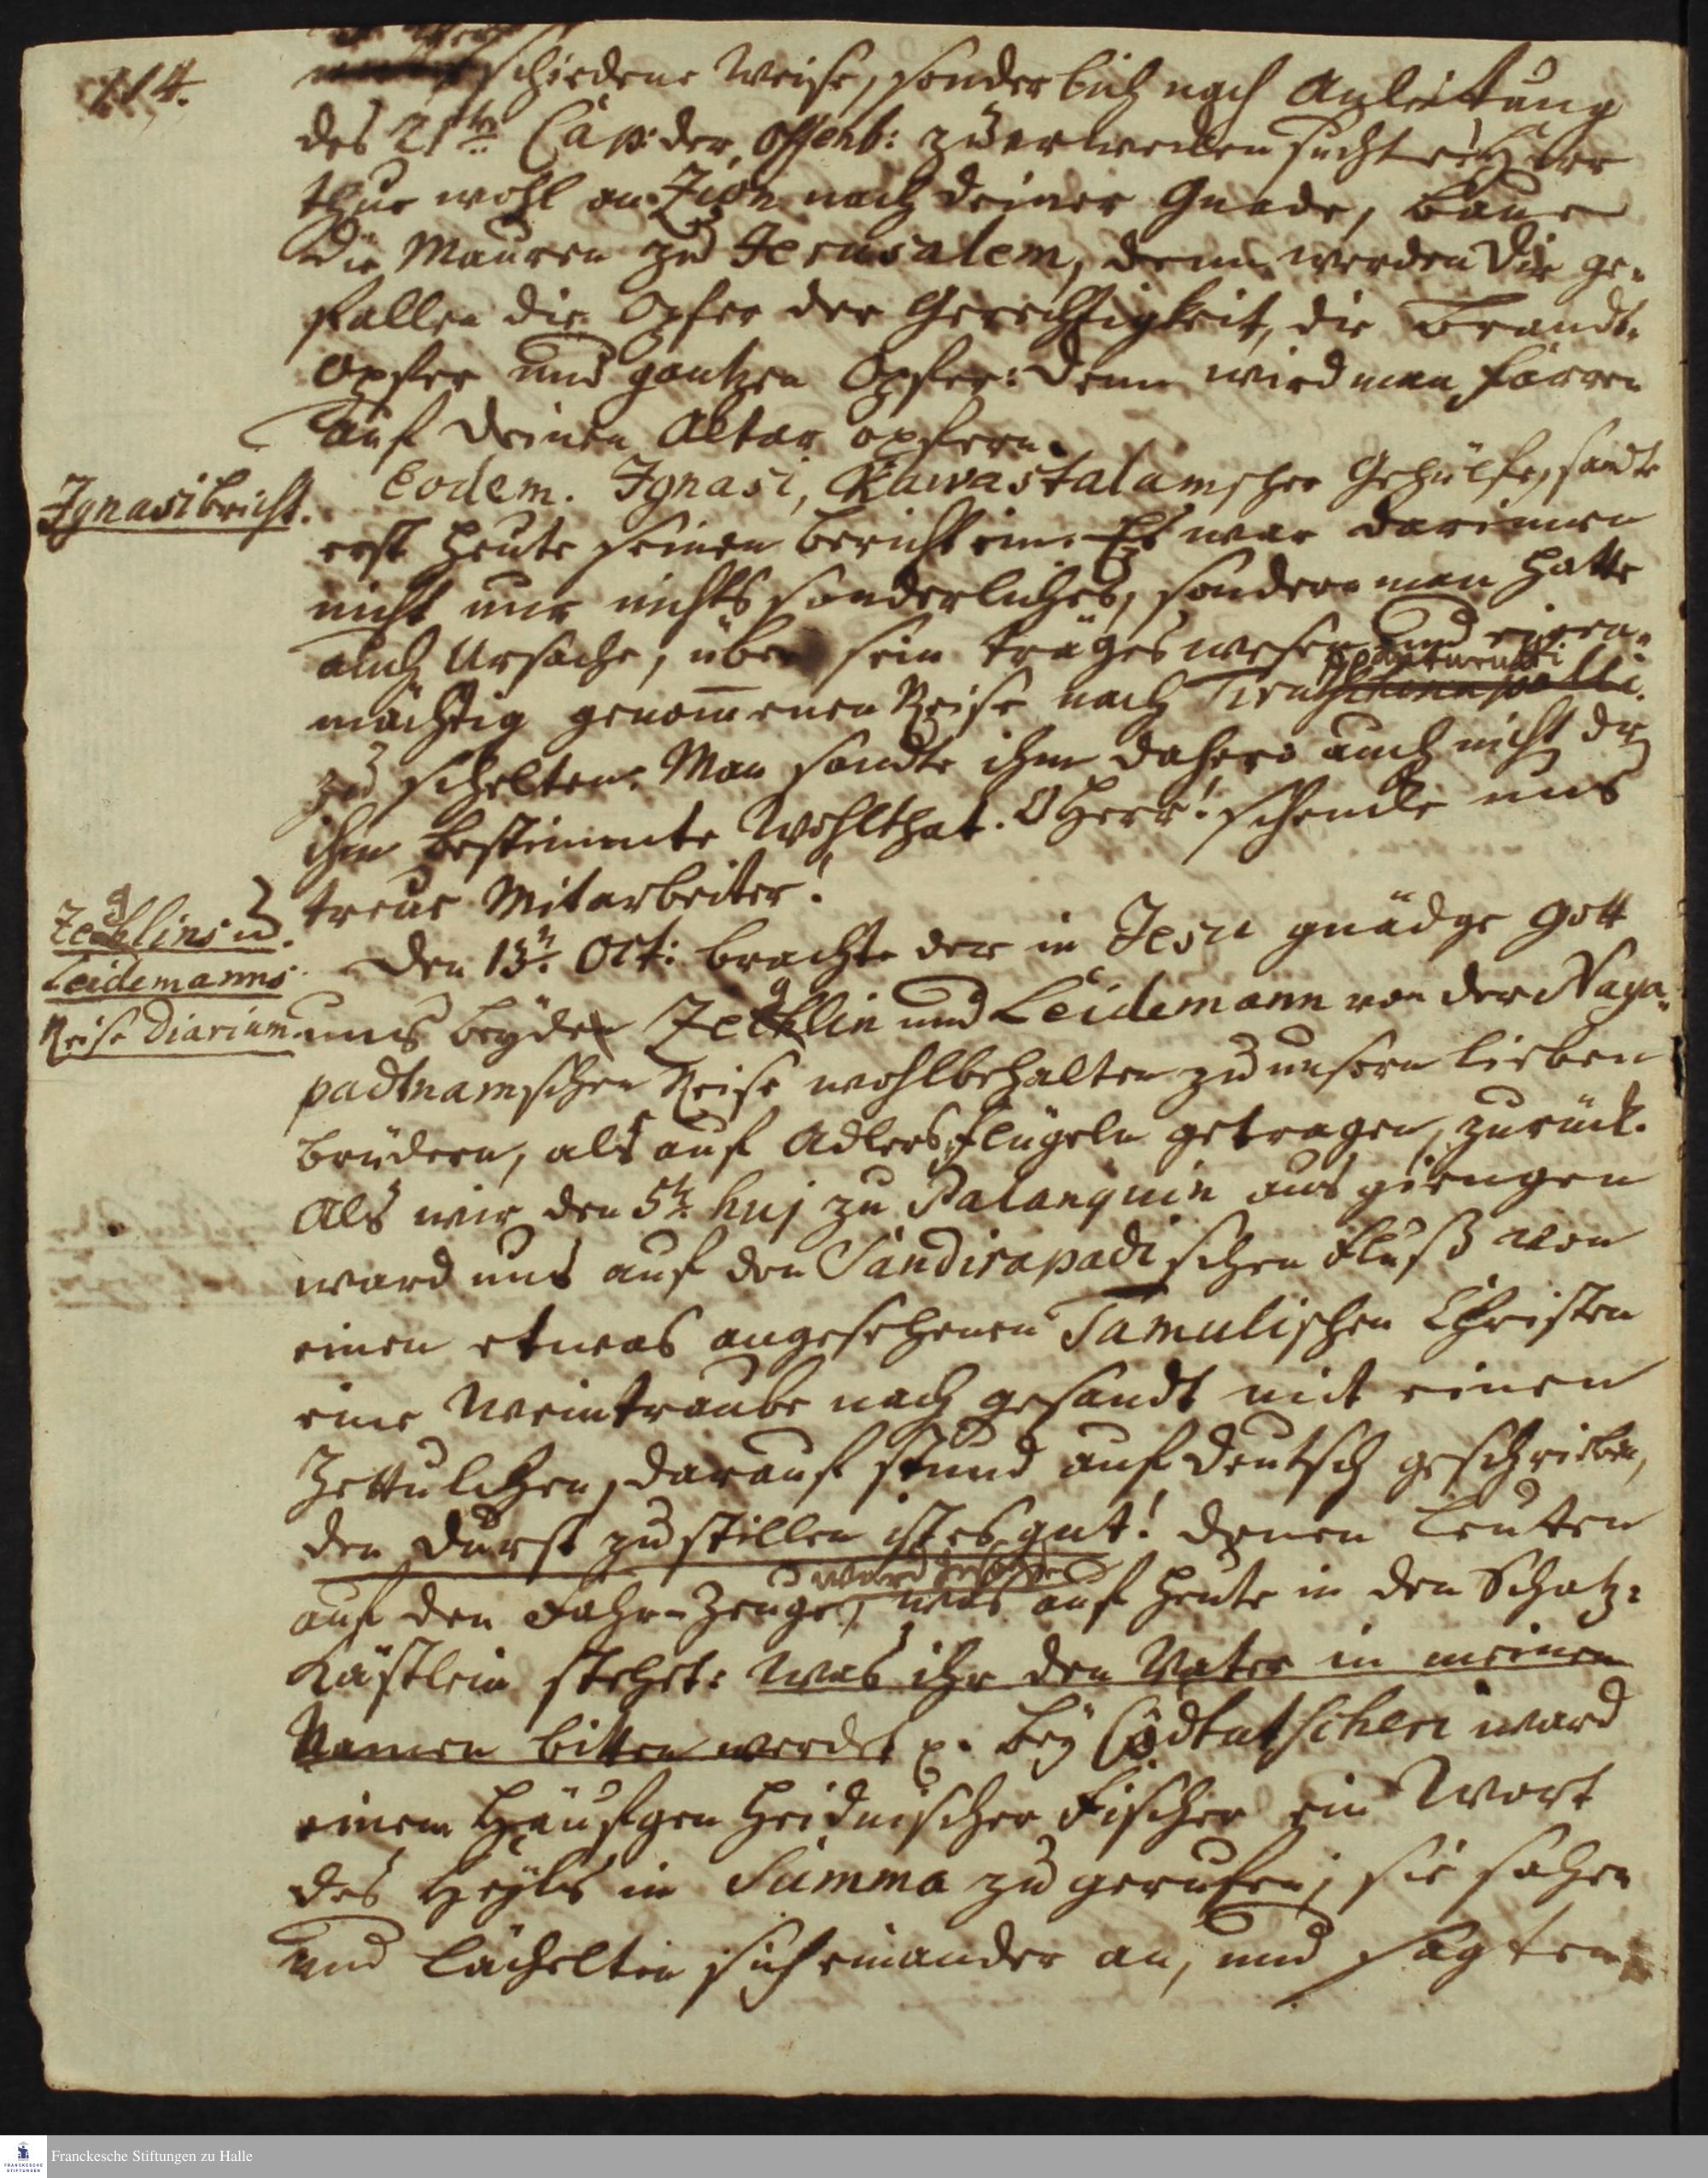 114.
schiedene Weise, sonderlich nach Anleitung
des 21ten Cap: der Offenb: zu erwecken sucht
thue wohl an Zion nach deiner Gnade, baue
die Mauren zu Jerusalem, denn werden Dir ge-
fallen die Opfer der Gerechtigkeit, die Brandt-
Opfer und gantzen Opfer: denn wird man Farren
auf deinen Altar opfern.
Ignasi bericht.
Eodem. Ignasi, Rawastalamscher Gehülfe, sandte
erst heute seinen bericht ein. Es war darinnen
nicht nur nichts sonderliches, sondern man hatte
auch Ursache, über sein träges wesen und eigen-
mächtig genommenen Reise nach
zu schelten. Man sandte ihm dahero auch nicht die
ihm bestimmte Wohlthat. O Herr! schencke uns
treue Mitarbeiter!
Zeglins u.
Leidemanns
Reise Diarium.
Den 13n. Oct: brachte der in Jesu gnädge Gott
uns beyde Zeglin und Leidemann von der Naga-
padtnamschen Reise wohlbehalten zu unsern lieben
brüdern, als auf Adlers Flügeln getragen, zurück.
Als wir den 5n. huj zu Palanquin aus giengen
ward uns auf den Sandirapadischen Fluß von
einen etwas angesehenen Tamulischen Christen
eine Weintraube nach gesandt mit einen
Zettulchen, darauf stund auf deutsch geschrieben,
den Durst zu stillen ist es gut! denen Leuten
ward
auf den Fahr-Zeuge, was auf heute in den Schatz-
Kästlein stehet: Was ihr den Vater in meinen
Namen bitten werdet p. bey ward
einem Häufgen Heidnischer Fischer ein Wort
des Heyls in Summa zu gerufen; sie sahen
und lächelten sich einander an, und sagten
Franckesche Stiftungen zu Halle
FRANCKESCHE
STIFTUNGEN